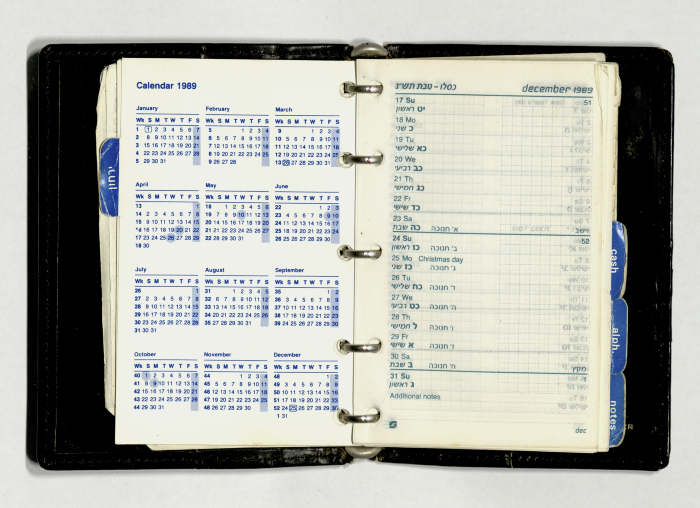 Calendar 1989
January
Wk S M T W T F S
1 1 2 3 4 5 6 7
2 8 9 10 11 12 13 14
3 15 16 17 18 19 20 21
4 22 23 24 25 26 27 28
5 29 30 31
February
Wk S M T W T F S
5 1 2 3 4
6 5 6 7 8 9 10 11
7 12 13 14 15 16 17 18
8 19 20 21 22 23 24 25
9 26 27 28
March
Wk S M T W T F S
9 1 2 3 4
10 5 6 7 8 9 10 11
11 12 13 14 15 16 17 18
12 19 20 21 22 23 24 25
13 26 27 28 29 30 31
April
Wk S M T W T F S
13 1
14 2 3 4 5 6 7 8
15 9 10 11 12 13 14 15
16 16 17 18 19 20 21 22
17 23 24 25 26 27 28 29
18 30
May
Wk S M T W T F S
18 1 2 3 4 5 6
19 7 8 9 10 11 12 13
20 14 15 16 17 18 19 20
21 21 22 23 24 25 26 27
22 28 29 30 31
June
Wk S M T W T F S
22 1 2 3
23 4 5 6 7 8 9 10
24 11 12 13 14 15 16 17
25 18 19 20 21 22 23 24
26 25 26 27 28 29 30
July
Wk S M T W T F S
26 1
27 2 3 4 5 6 7 8
28 9 10 11 12 13 14 15
29 16 17 18 19 20 21 22
30 23 24 25 26 27 28 29
31 30 31
August
Wk S M T W T F S
31 1 2 3 4 5
32 6 7 8 9 10 11 12
33 13 14 15 16 17 18 19
34 20 21 22 23 24 25 26
35 27 28 29 30 31
September
Wk S M T W T F S
35 1 2
36 3 4 5 6 7 8 9
37 10 11 12 13 14 15 16
38 17 18 19 20 21 22 23
39 24 25 26 27 28 29 30
October
Wk S M T W T F S
40 1 2 3 4 5 6 7
41 8 9 10 11 12 13 14
42 15 16 17 18 19 20 21
43 22 23 24 25 26 27 28
44 29 30 31
November
Wk S M T W T F S
44 1 2 3 4
45 5 6 7 8 9 10 11
46 12 13 14 15 16 17 18
47 19 20 21 22 23 24 25
48 26 27 28 29 30
December
Wk S M T W T F S
48 1 2
49 3 4 5 6 7 8 9
50 10 11 12 13 14 15 16
51 17 18 19 20 21 22 23
52 24 25 26 27 28 29 30
1 31
כסלו - טבת תש״נ december 1989
17 Su 51
יט ראשון
18 Mo
כ שני
19 Tu
כא שלישי
20 We
כב רביעי
21 Th
כג חמישי
22 Fr
כד שישי
23 Sa
כה שבת א׳ חנוכה וישב
24 Su 52
כו ראשון ב׳ חנוכה
25 Mo Christmas day
כז שני ג׳ חנוכה
26 Tu
כח שלישי ד׳ חנוכה
27 We
כט רביעי ה׳ חנוכה
28 Th
ל חמישי ו׳ חנוכה
29 Fr
א שישי ז׳ חנוכה
30 Sa
ב שבת ח׳ חנוכה מקץ
31 Su
ג ראשון
Additional notes
dec
cash
alph.
notes